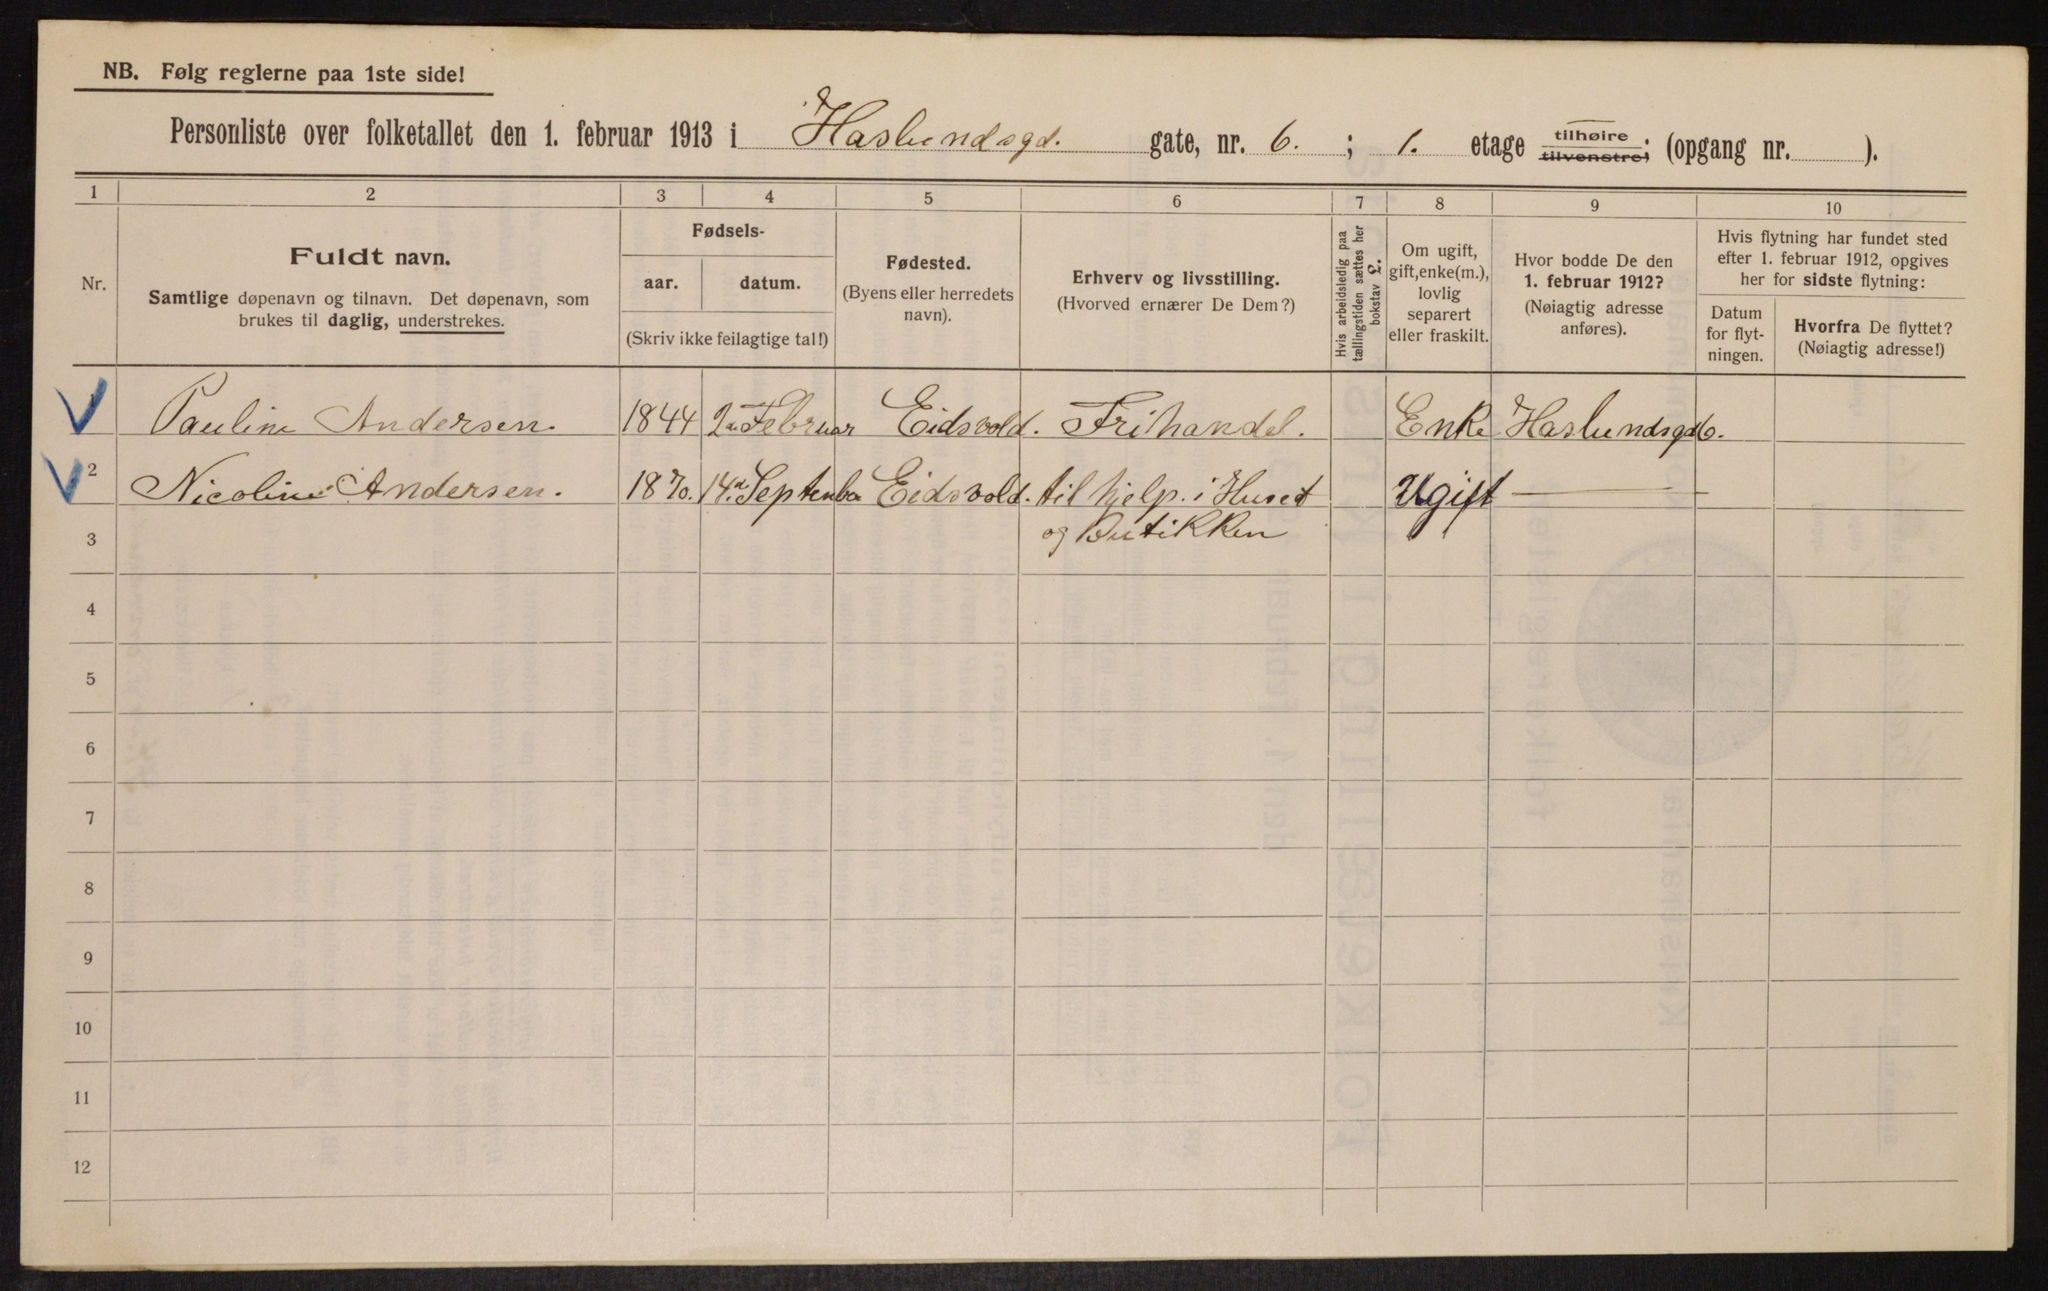 NB. Følg reglerne paa 1ste side!
Personliste over folketallet den 1. februar 1913 i Haslundsgd. gate, nr. 6. ; 1. etage tilhøire tilvenstre; (opgang nr. ).
1 2 3 4 5 6 7 8 9 10
Nr.
Fuldt navn.
Samtlige døpenavn og tilnavn. Det døpenavn, som
brukes til daglig, understrekes.
Fødsels-
aar. datum.
(Skriv ikke feilagtige tal!)
Fødested.
(Byens eller herredets
navn).
Erhverv og livsstilling.
(Hvorved ernærer De Dem?)
Hvis arbeidsledig paa
tællingstiden sættes her
bokstav L.
Om ugift,
gift, enke(m.),
lovlig
separert
eller fraskilt.
Hvor bodde De den
1. februar 1912?
(Nøiagtig adresse
anføres).
Hvis flytning har fundet sted
efter 1. februar 1912, opgives
her for sidste flytning:
Datum
for flyt-
ningen.
Hvorfra De flyttet?
(Nøiagtig adresse!)
Pauline Andersen. 1844 2 Februar Eidsvold. Frihandel. Enke Haslundsgd 6.
2 Nicoline Andersen. 1870. 14 September Eidsvold. til hjelp i Huset Ugift —
og Butikken
3
4
5
6
7
8
9
10
11
12